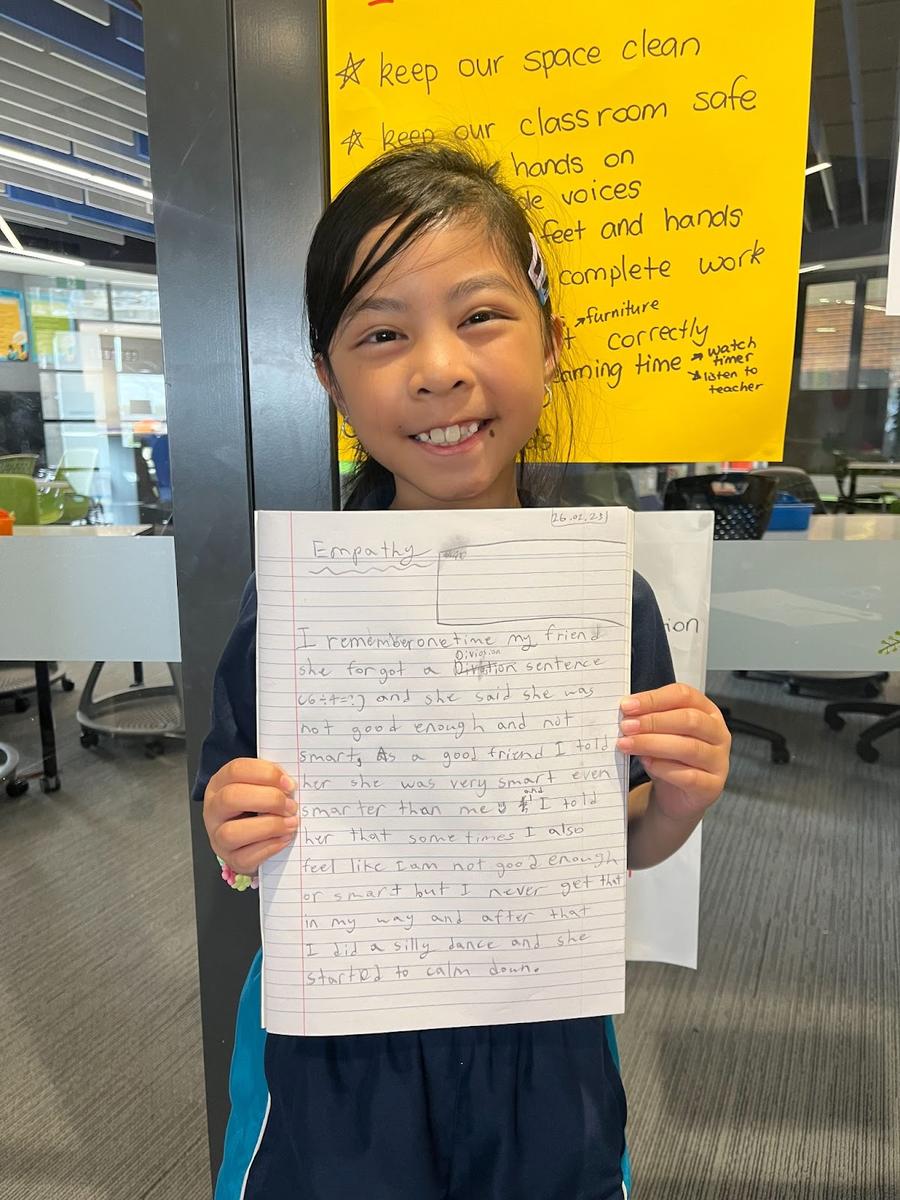 ☆ keep our space clean
☆ keep our classroom safe
hands on
voices
feet and hands
complete work
→ furniture
correctly
time → watch timer
→ listen to teacher
26.02.23
Empathy
I remember one time my friend
she forgot a Division sentence
and she said she was
not good enough and not
smart, As a good friend I told
her she was very smart even
smarter than me and I told
her that sometimes I also
feel like I am not good enough
or smart but I never get that
in my way and after that
I did a silly dance and she
started to calm down.
ion